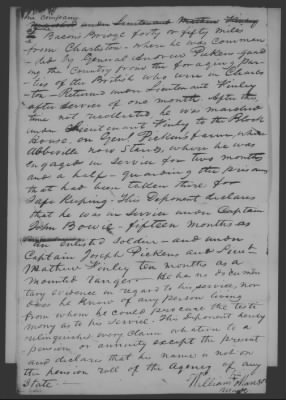 the company
marched under Lieutenant Mathew Finley
to
Bacons Bridge forty or fifty miles
from Charleston. where he was comman
ded by General Andrew Pickens guard
ing the Country from the foraging par-
ties of the British who were in Charles
ton - Returned under Lieutenant Finley
after service of one month. After this,
time not recollected he was marched
under Lieutenant Finley to the Block
house on Genl Pickens farm, where
Abbeville now Stands, where he was
engaged in Service for two months
and a half - guarding the prisoners
that had been taken there for
Safe Keeping. This Deponent declares
that he was in Service under Captain
John Bowie - fifteen months as
an enlisted Soldier - and under
Captain Joseph Pickens and Lieut-
Mathew Finley ten months as a
mounted Ranger - He has no documen
tary evidence in regard to his service, nor
does he know of any person living
from whom he could procure the testi
mony as to his Service. This Deponent hereby
relinquishes every claim whatever to a
pension or annuity except the present
and declares that his name is not on
the pension roll of the agency of any
State -
William
mark